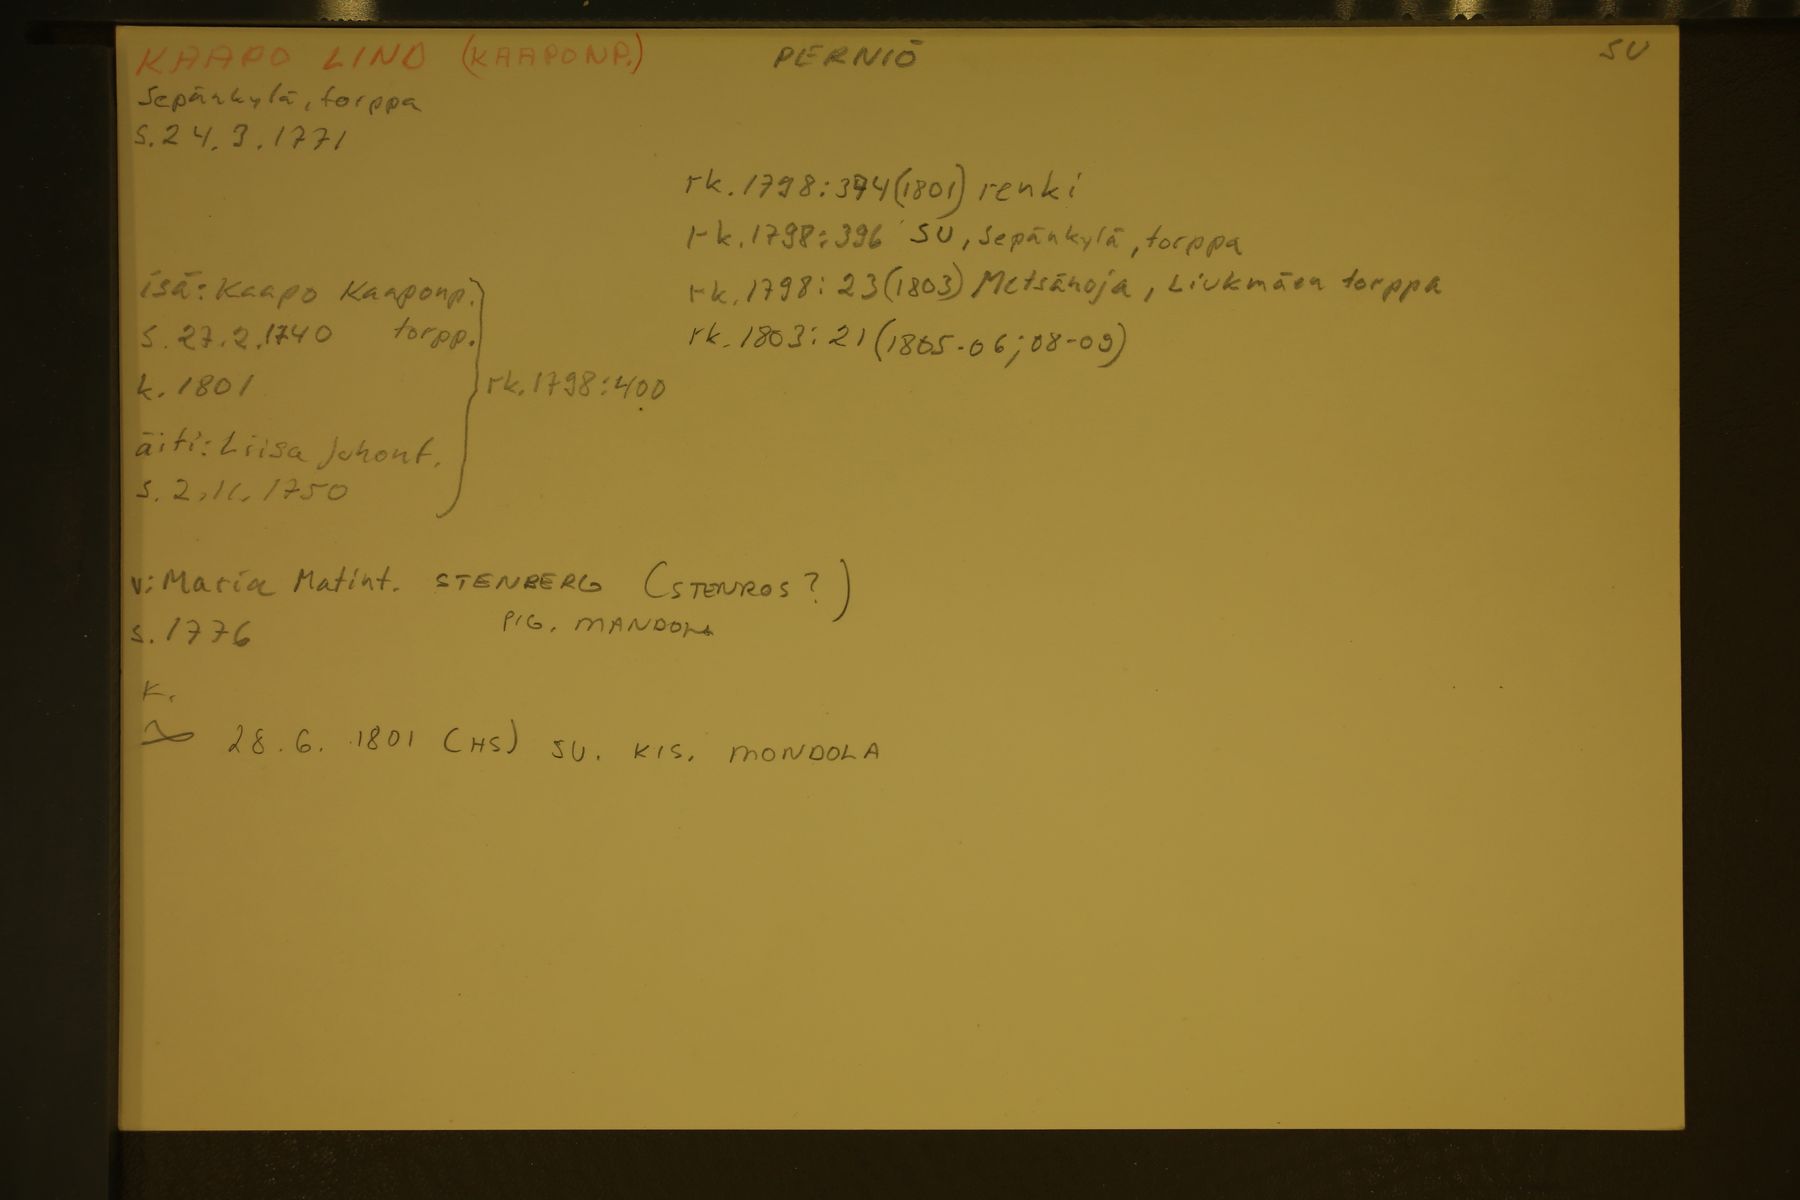 KAAPO LIND (KAAPONP.) PERNIÖ SU
Sepänkylä, torppa
s. 24.3.1771
rk. 1798:394(1801) renki
rk. 1798:396 SU, Sepänkylä, torppa
isä: Kaapo Kaaponp. rk. 1798:23(1803) Metsänoja, Liukmäen torppa
s. 27.2.1740 torpp. rk. 1803:21(1805-06;08-09)
k. 1801 rk. 1798:400
äiti: Liisa Juhont.
s. 2.11.1750
v: Maria Matint. STENBERG (STENROS?)
s. 1776 PIG. MANDOLA
k.
28.6.1801 (HS) SU. KIS. MONDOLA